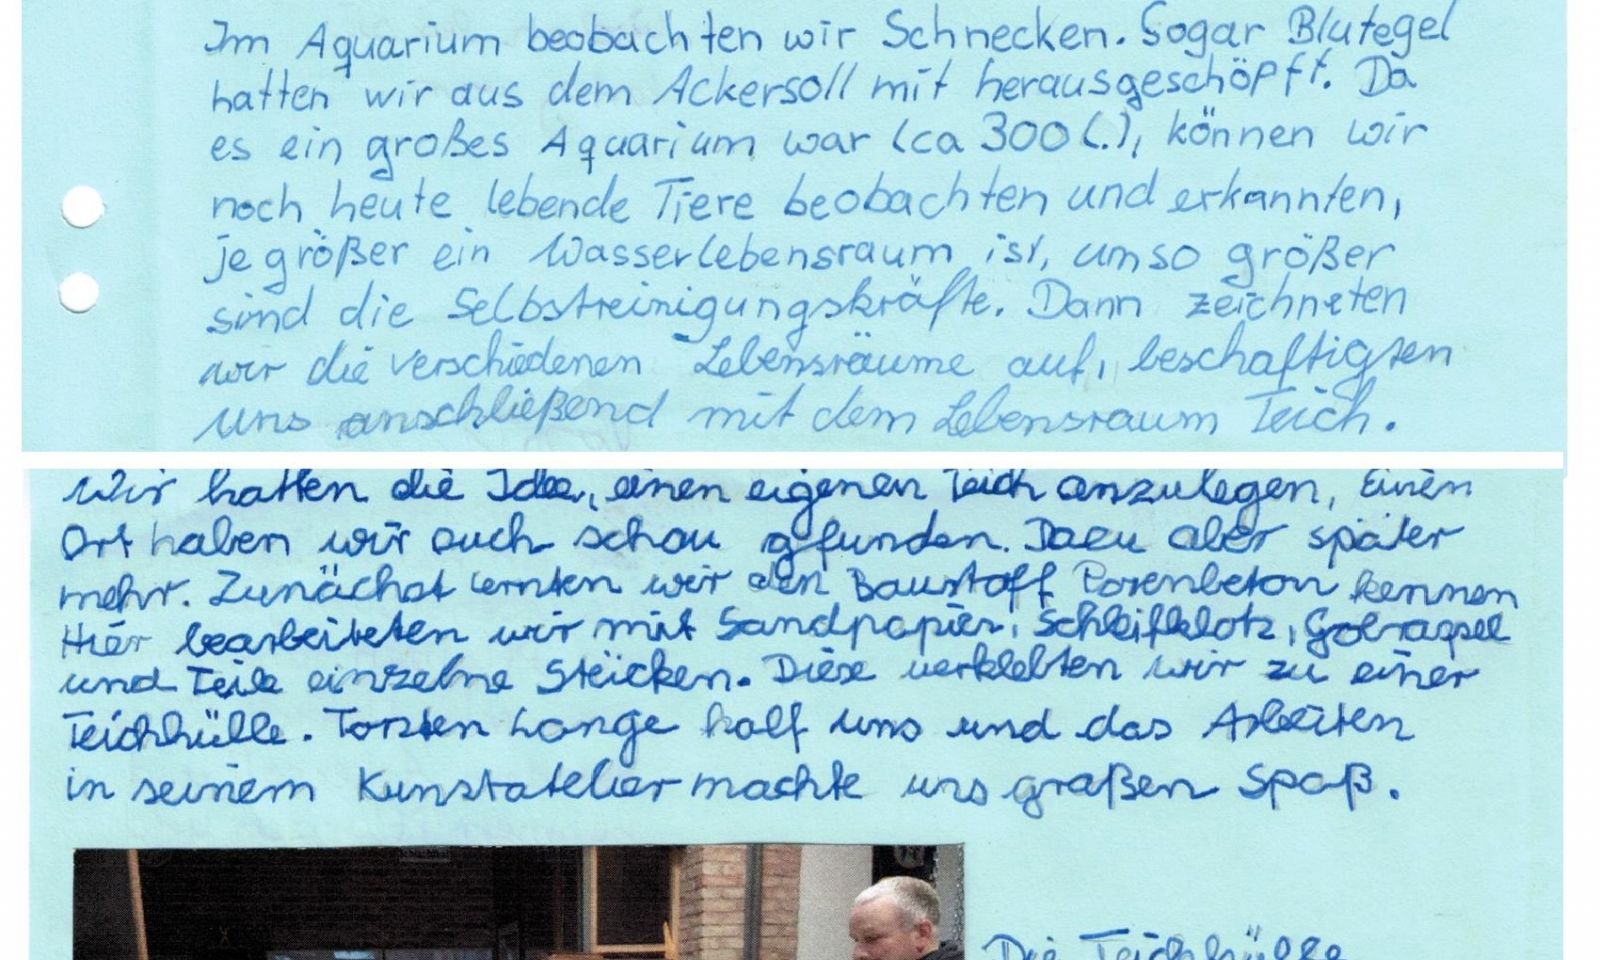 Im Aquarium beobachten wir Schnecken. Sogar Blutegel
hatten wir aus dem Ackersoll mit herausgeschöpft. Da
es ein großes Aquarium war (ca 300 l.), können wir
noch heute lebende Tiere beobachten und erkannten,
je größer ein Wasserlebensraum ist, umso größer
sind die Selbstreinigungskräfte. Dann zeichneten
wir die verschiedenen Lebensräume auf, beschäftigten
uns anschließend mit dem Lebensraum Teich.
Wir hatten die Idee, einen eigenen Teich anzulegen, Einen
Ort haben wir auch schon gfunden. Dazu aber später
mehr. Zunächst lernten wir den Baustoff Porenbeton kennen
Hier bearbeiteten wir mit Sandpapier, Schleifklotz,
und Feile einzelne Stücken. Diese verklebten wir zu einer
Teichhülle. Torsten Lange half uns und das Arbeiten
in seinem Kunstatelier machte uns großen Spaß.
Die Teichhülle